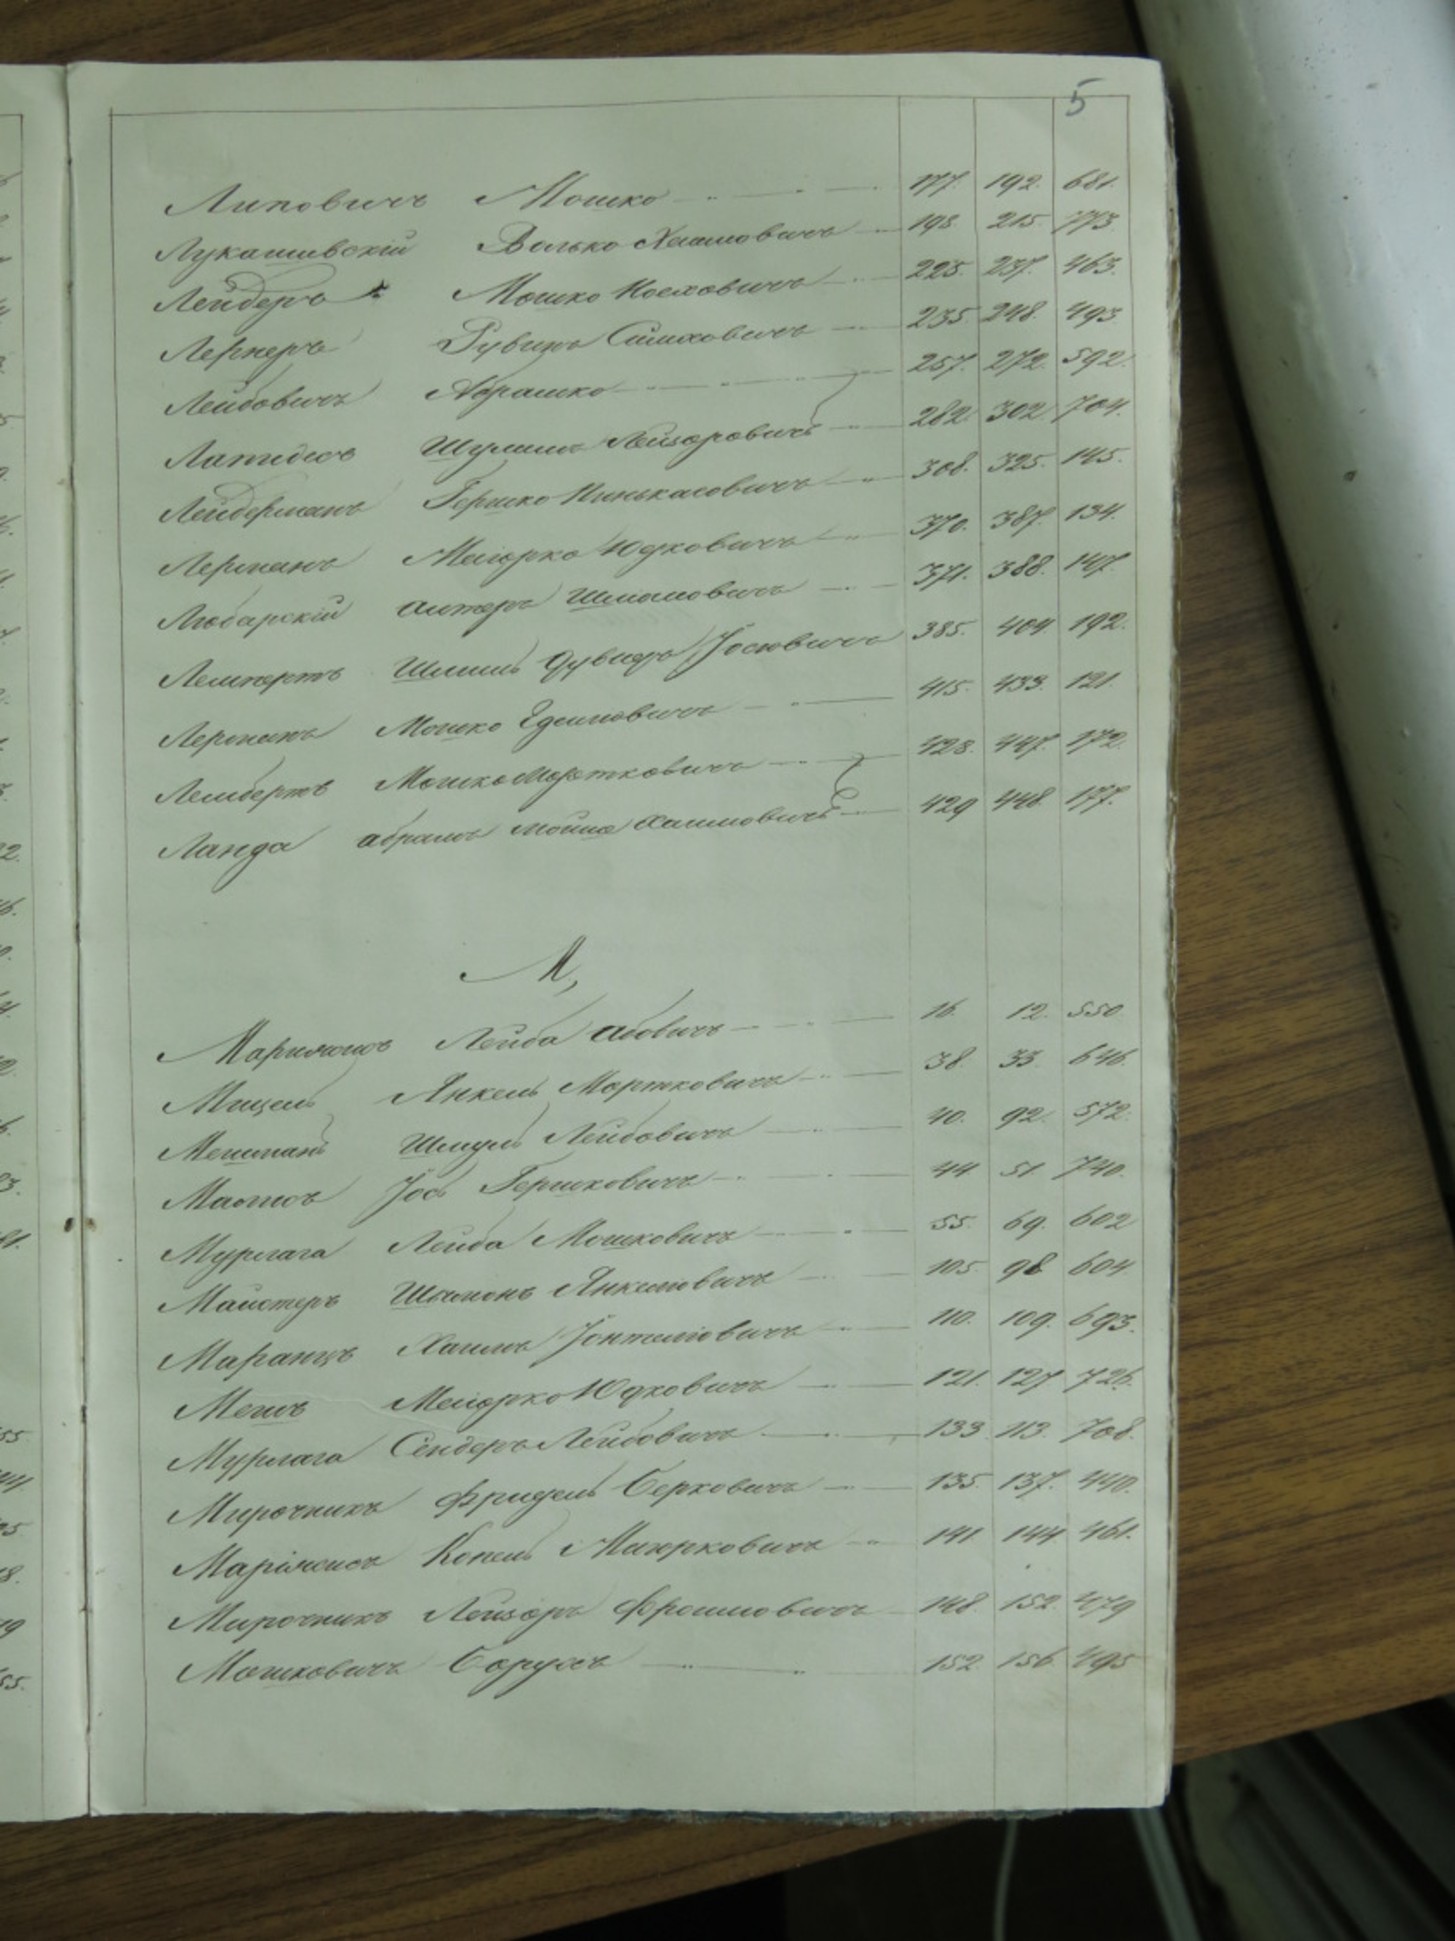 5
Липовичъ Мошко 177. 192. 681.
Лукашивскій Волько Хаимовичъ 198. 215. 773.
Лейдеръ Мошко Иосиовичъ 225. 237. 463.
Лернеръ Рувинъ Симховичъ 235. 248. 493.
Лейбовичъ Абрашко 257. 272. 592.
Лапидесъ Шулимъ Лейзоровичъ 282. 302. 704.
Лейдерманъ Гершко Пинькасовичъ 308. 325. 145.
Лерманъ Меіорко Юдковичъ 370. 387. 134.
Любарскій Алтеръ Шмоиловичъ 371. 388. 147.
Лемпертъ Шлиіль Дувидъ Іосіовичъ 385. 404. 192.
Лерманъ Мошко Едельовичъ 415. 433. 121.
Лембертъ Мошко Мортковичъ 428. 447. 172.
Ланда Абрамъ Мойше Хаимовичъ 429 448. 177.
М,
Маріямисъ Лейба Абовичъ 16. 12. 550.
Мицель Янкель Мортковичъ 38. 33. 646.
Мешманъ Шмуль Лейбовичъ 40. 92. 572.
Мальисъ Іось Гершковичъ 44 51. 740.
Мурлага Лейба Мошковичъ 55. 69. 602
Майстеръ Шимонъ Янкелиовичъ 105. 98 604
Маранцъ Хаимъ Іонтелиовичъ 110. 109. 693.
Мешъ Меіорко Юдковичъ 121. 127. 726.
Мурлага Сендеръ Лейбовичъ 133. 113. 708.
Мирочникъ Фридель Берковичъ 135. 137. 440.
Маріямисъ Копель Маіорковичъ 141. 144. 461.
Мирочникъ Лейзоръ Фроимовичъ 148. 152. 479
Мошковичъ Борухъ 152. 156. 495